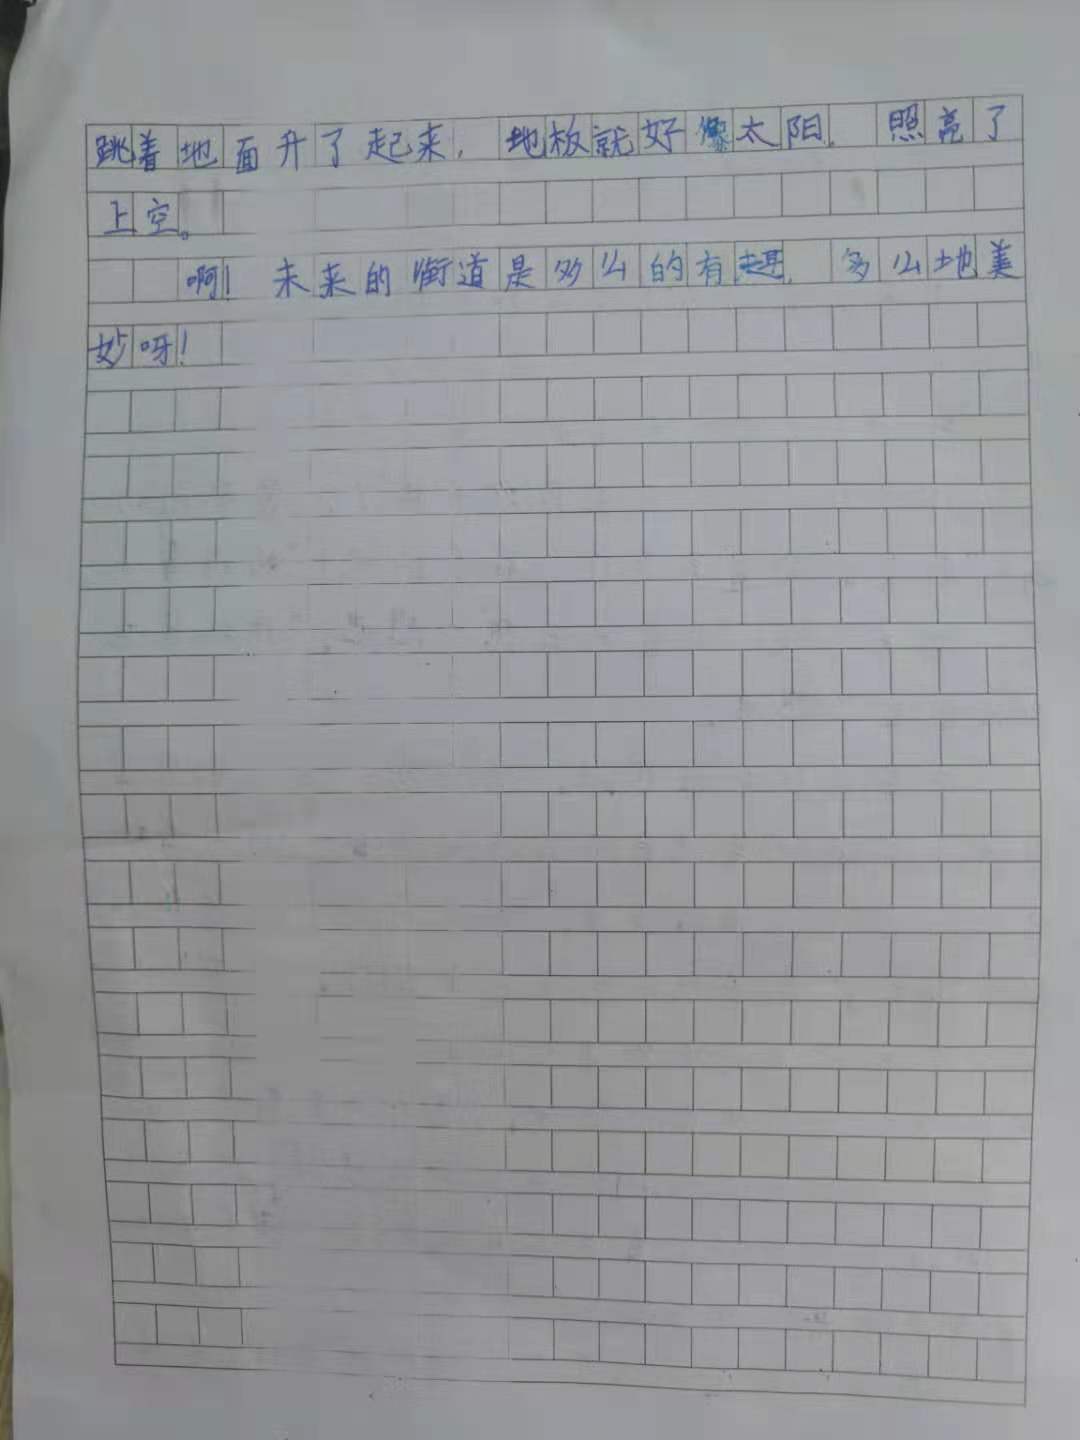 跳着地面升了起来,地板就好像太阳,照亮了
上空。
啊!未来的街道是多么的有趣,多么地美
妙呀!